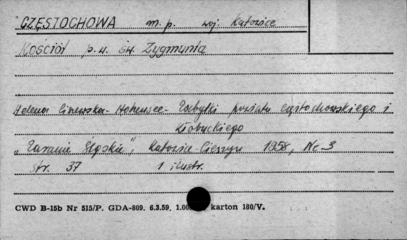 CZĘSTOCHOWA m. p. woj. Katowice
Kościół p.w. św. Zygmunta
Helena - Hohensee - Zabytki powiatu częstochowskiego i
kłobuckiego
„Zaranie Śląskie", Katowice-Cieszyn 1958, Nr 3
str. 37 1 ilustr.
CWD B-15b Nr 515/P. GDA-809. 6.3.59, 1.00 karton 180/V.